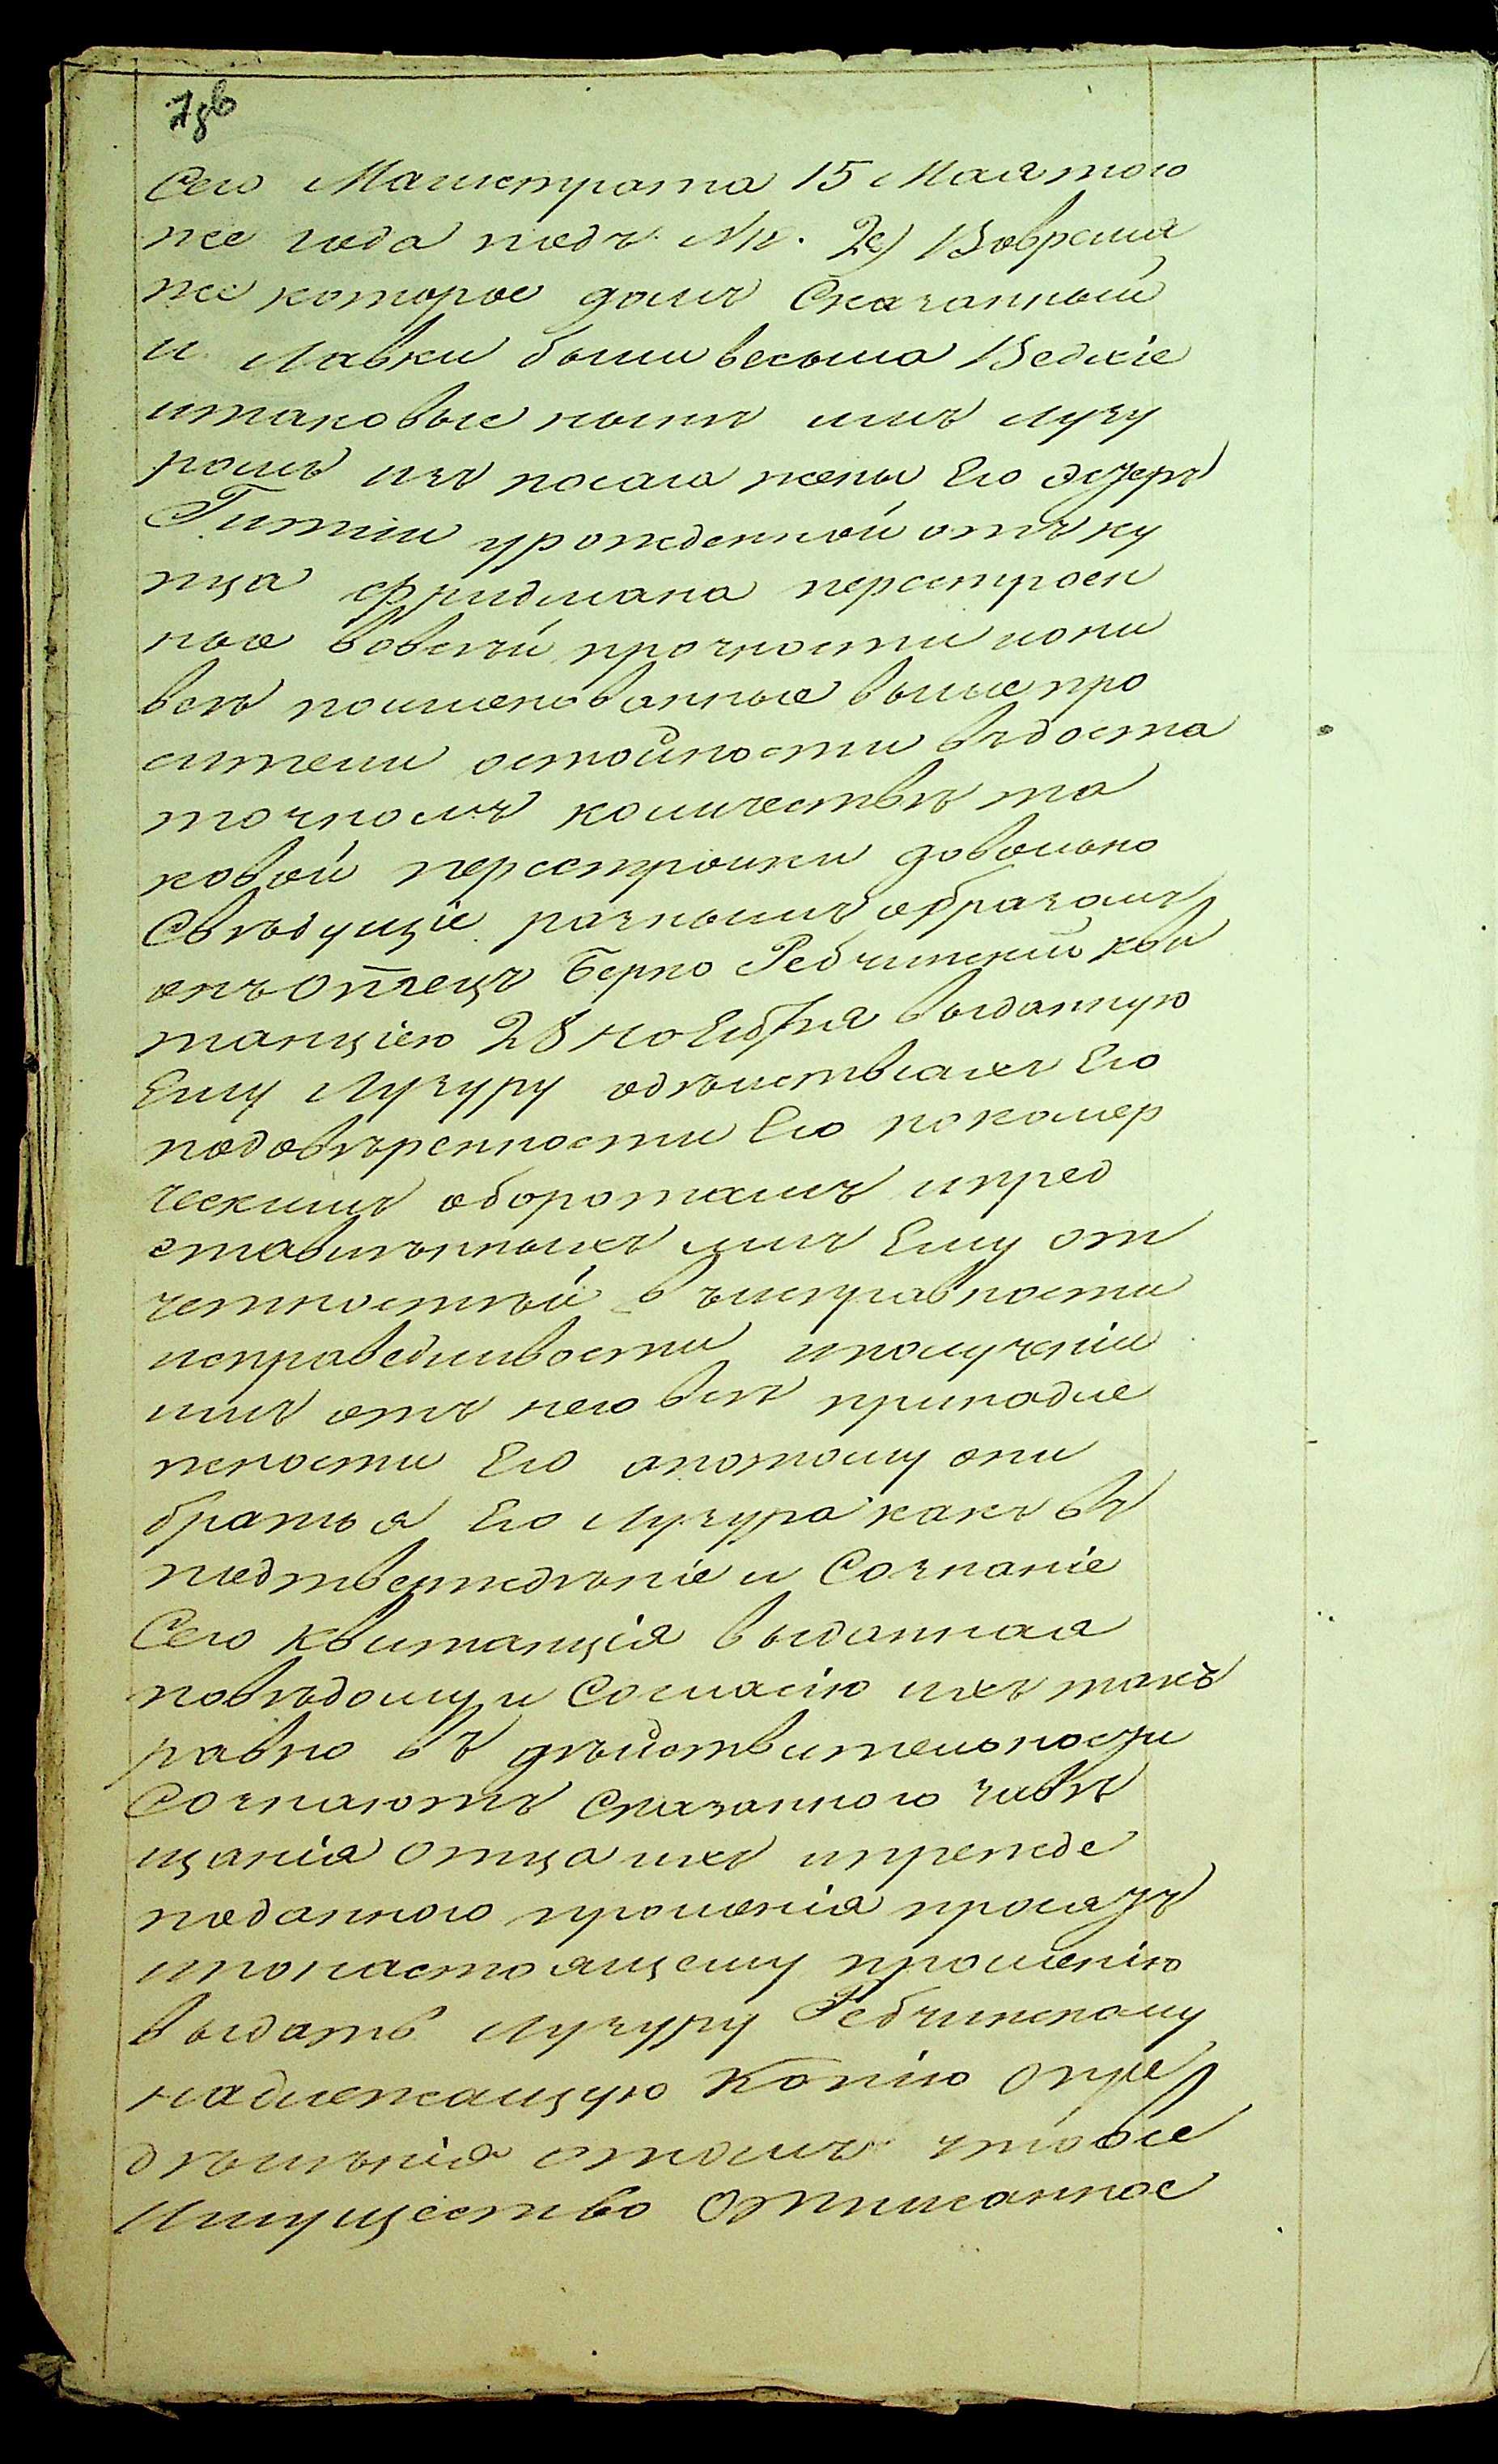 сего Магистрата 15 Мая того
же года подъ №. 2е) Вовремя
же которое домъ Сказанный
и Лавки были весьма Ведхіе
итаковые нынѣ имъ лузу
ромъ изъ посага жены Его Эстеръ
Гитли урожденной отъ ку
пца Фридмана перестроен
ные вовсей прочности иони
всѣ поименованные выше про
сители остойности въдоста
точномъ количествѣ та
ковой перестройки довольно
Свѣдущіе разнымъ образомъ
онъ Отецъ Берко Рабчинскій кви
танціею 28 ноЕбря выданную
Ему Лузуру одѣйствіахъ Его
подовѣренности Его покомер
ческимъ оборотамъ ипред
ставлѣнныхъ имъ Ему от
четностѣй въисправности
исправедливости иполученіи
имъ отъ него всѣ принадле
жности Его апотому они
братья Его Лузура какъ въ
подтвержденіе и Сознаніе
Сего квитанція выданная
повѣдому и Согласію ихъ такъ
равно въ дѣйствительности
Сознаютъ Сказанного завѣ
щанія Отца ихъ ипрежде
поданного прошенія просятъ
ипонастоящему прошенію
выдать Лузуру Рабчинскому
надлежащую Копію Опре
дѣлѣнія отомъ чтобы
Имущество Отписанное